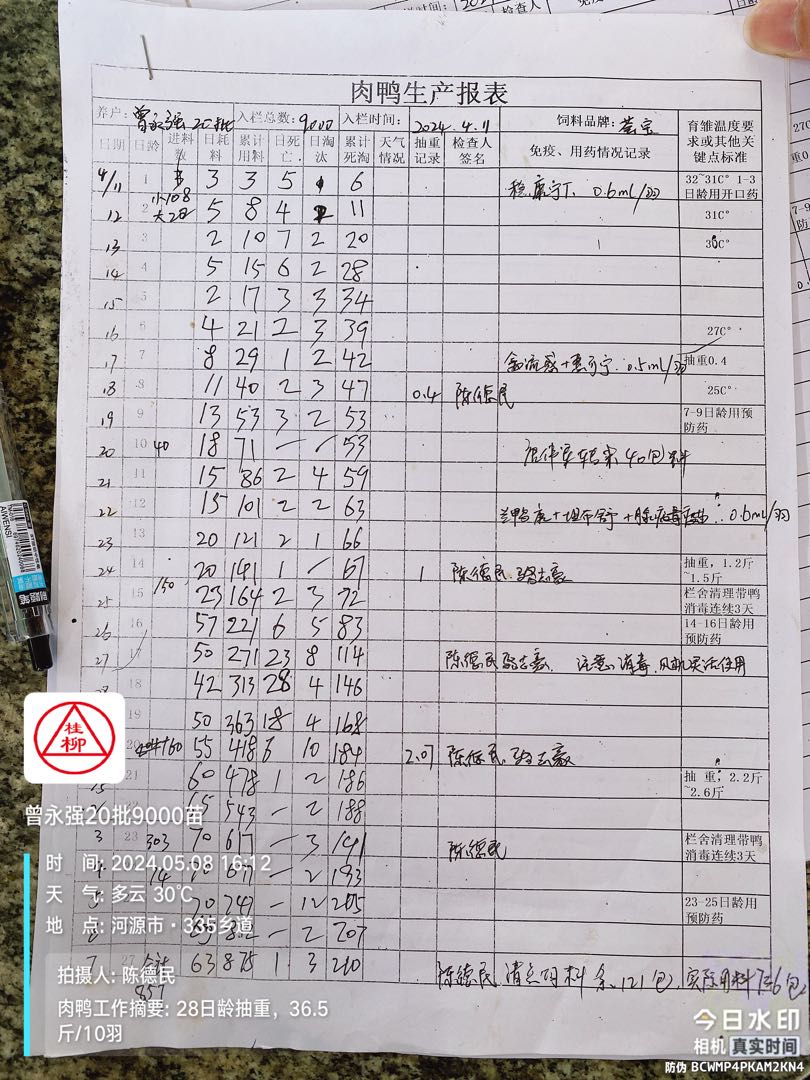 肉鸭生产报表
养户: 曾永强 20批 入栏总数: 9000 入栏时间: 2024.4.11 饲料品牌: 育雏温度要求或其他关键点标准
日期 日龄 进料数 日耗料 累计用料 日死亡 日淘汰 累计死淘 天气情况 抽重记录 检查人签名 免疫、用药情况记录
4/11 1 3 3 5 6 0.6ml/羽 32~31C° 1-3日龄用开口药
12 2 小108 大2 5 8 4 2 11 31C°
13 3 2 10 7 2 20 30C°
14 4 5 15 6 2 28
15 5 2 17 3 3 34
16 6 4 21 2 3 39 27C°
17 7 8 29 1 2 42 0.5ml/羽 抽重0.4
18 8 11 40 2 3 47 0.4 陈德民 25C°
19 9 13 53 3 2 53 7-9日龄用预防药
20 10 40 18 71 — — 53 40包料
21 11 15 86 2 4 59
22 12 15 101 2 2 63 0.6ml/羽
23 13 20 121 2 1 66
24 14 20 141 1 67 1 陈德民 抽重, 1.2斤~1.5斤
25 15 150 23 164 2 3 72 栏舍清理带鸭消毒连续3天
26 16 57 221 6 5 83 14-16日龄用预防药
27 17 50 271 23 8 114 陈德民 注意消毒,风机灵活使用
18 42 313 28 4 146
19 50 363 18 4 168
20 55 418 6 10 184 2.07 陈德民
21 60 478 1 2 186 抽 重, 2.2斤~2.6斤
22 65 543 — 2 188
3 23 303 70 617 — 3 191 陈德民 栏舍清理带鸭消毒连续3天
4 — 2 193
5 70 747 — 12 205 23-25日龄用预防药
6 — 2 207
7 27 合计 63 875 1 3 210 陈德民 清点 料余121包 实际用料 包
957
桂柳
曾永强20批9000苗
时 间: 2024.05.08 16:12
天 气: 多云 30℃
地 点: 河源市·335乡道
拍摄人: 陈德民
肉鸭工作摘要: 28日龄抽重，36.5斤/10羽
今日水印
相机 真实时间
防伪 BCWMP4PKAM2KN4
AIWENSI